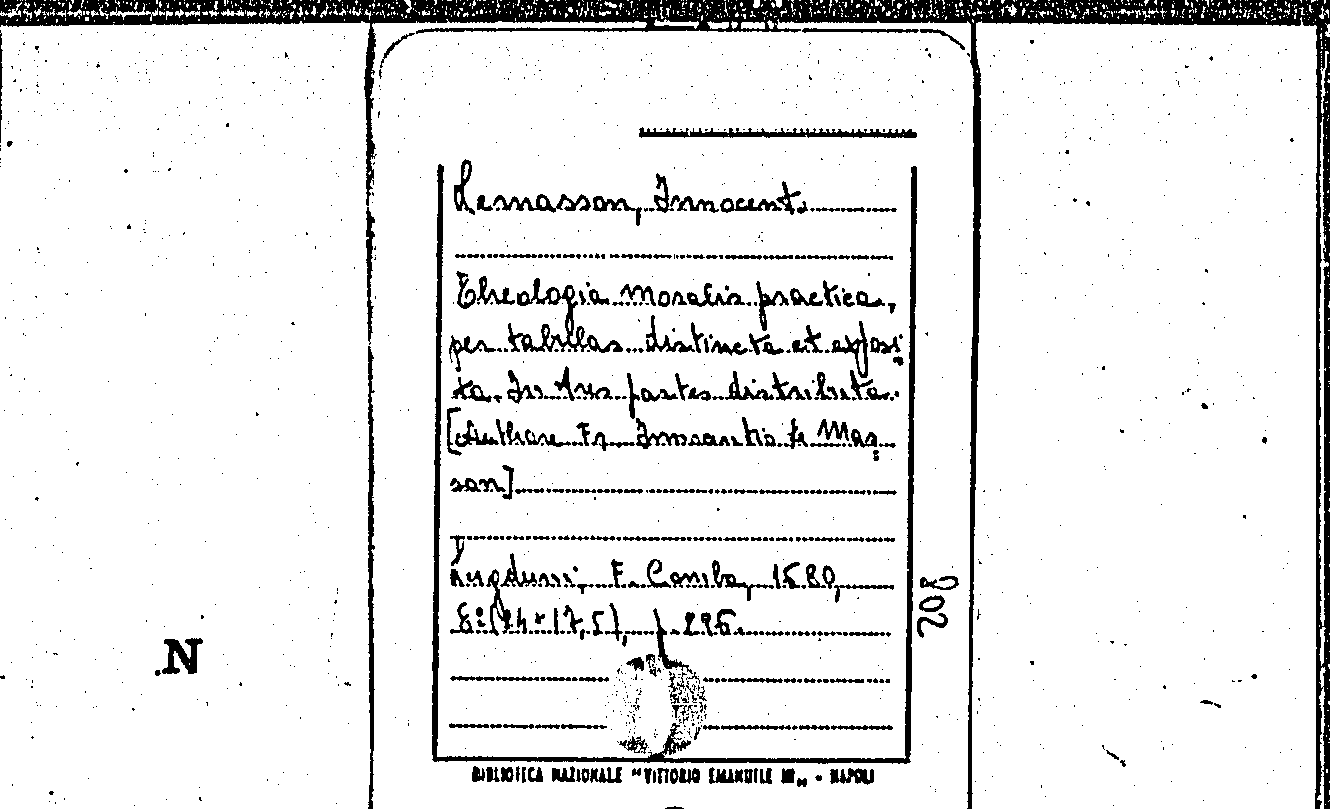 Lemasson, Innocent.
Theologia moralis practica,
per tabellas distincta et exposi
ta. In tres partes distributa.
[Authore Fr. Innocentio le Mas
son]
Lugduni, F. Comba, 1680,
8º (24×17,5), p. 296.
802
N
BIBLIOTECA NAZIONALE "VITTORIO EMANUELE III„ - NAPOLI